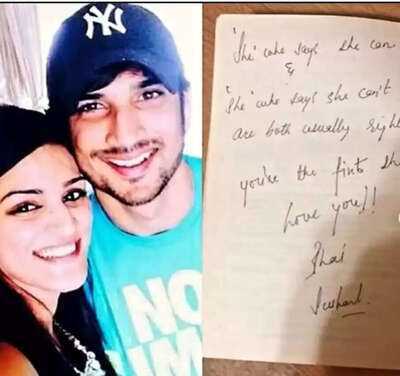 NY
NO
'She' who says she can
&
'She' who says she can't
are both usually righ
you're the first
Love you!!
Bhai
Sushant.